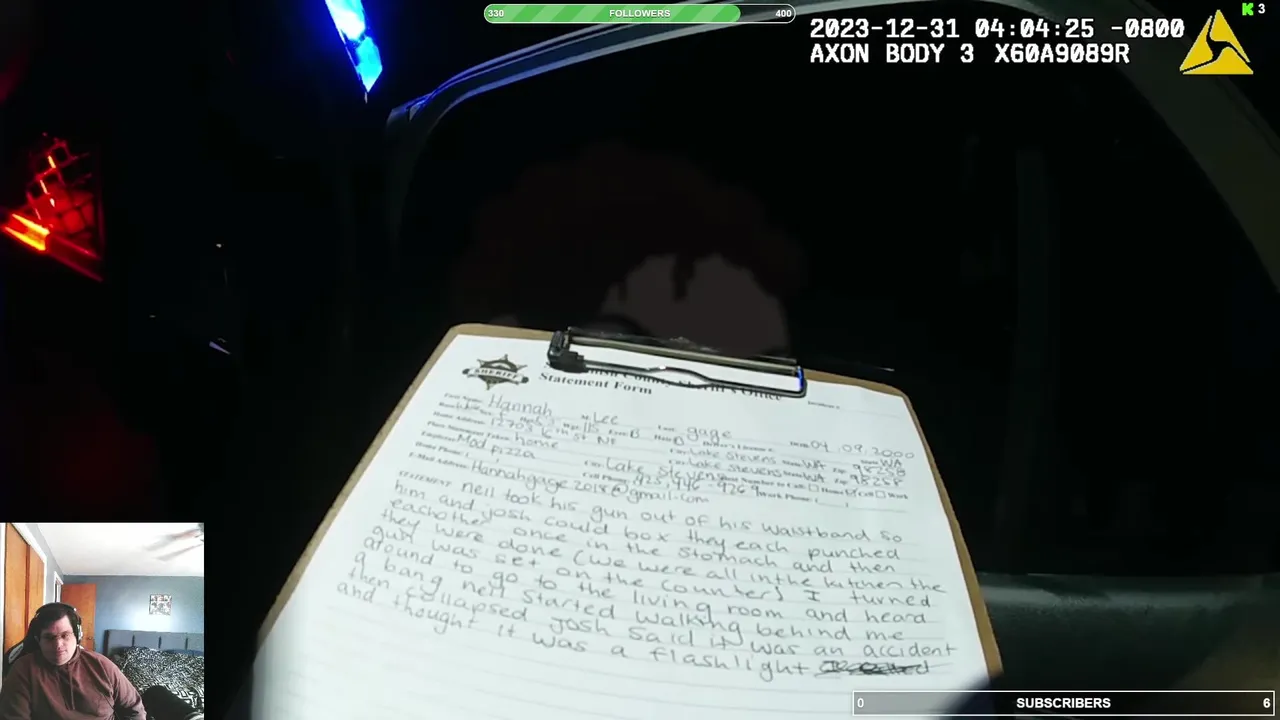 330 FOLLOWERS 400
K 3
2023-12-31 04:04:25 -0800
AXON BODY 3 X60A9089R
SHERIFF
County Sheriff's Office
Statement Form
Hannah Lee gage 04.09.2000
12703 16th St NE Lake Stevens WA
home Lake Stevens WA 98258
Mod pizza Lake Stevens WA 98258
E-Mail Address: Hannahgage2018@gmail.com
STATEMENT neil took his gun out of his waistband so
him and josh could box they each punched
eachother once in the stomach and then
they were done (we were all in the kitchen the
gun was set on the counter) I turned
around to go to the living room and heard
a bang neil started walking behind me
then collapsed josh said it was an accident
and thought it was a flashlight
0 SUBSCRIBERS 6